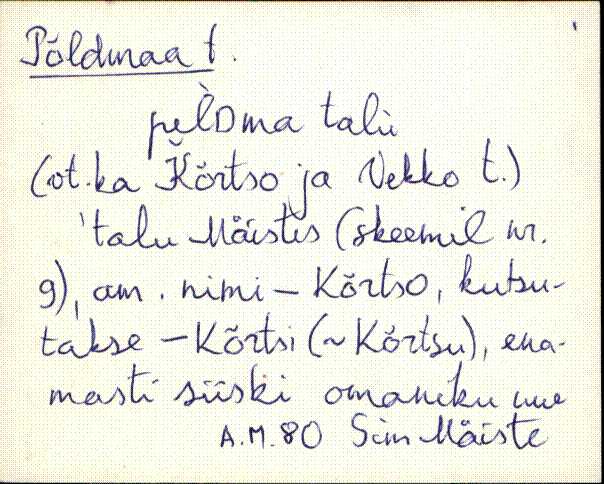 Põldmaa t.
pel̀Dma talù
(vt. ka Kõrtso ja Vekko t.)
'talu Mäistes (skeemil nr.
9), am. nimi – Kõrtso, kutsu-
takse – Kõrtsi (~ Kõrtsu), ena-
masti siiski omaniku
A.M. 80 Sim Mäiste